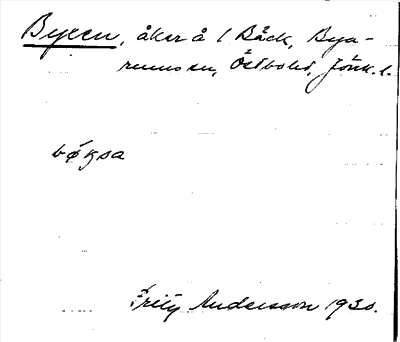 Byxen, åker å 1 Bäck, Bya-
rums sn, Östbo hd, Jönk. l.
bøksa
Fritz Andersson 1930.